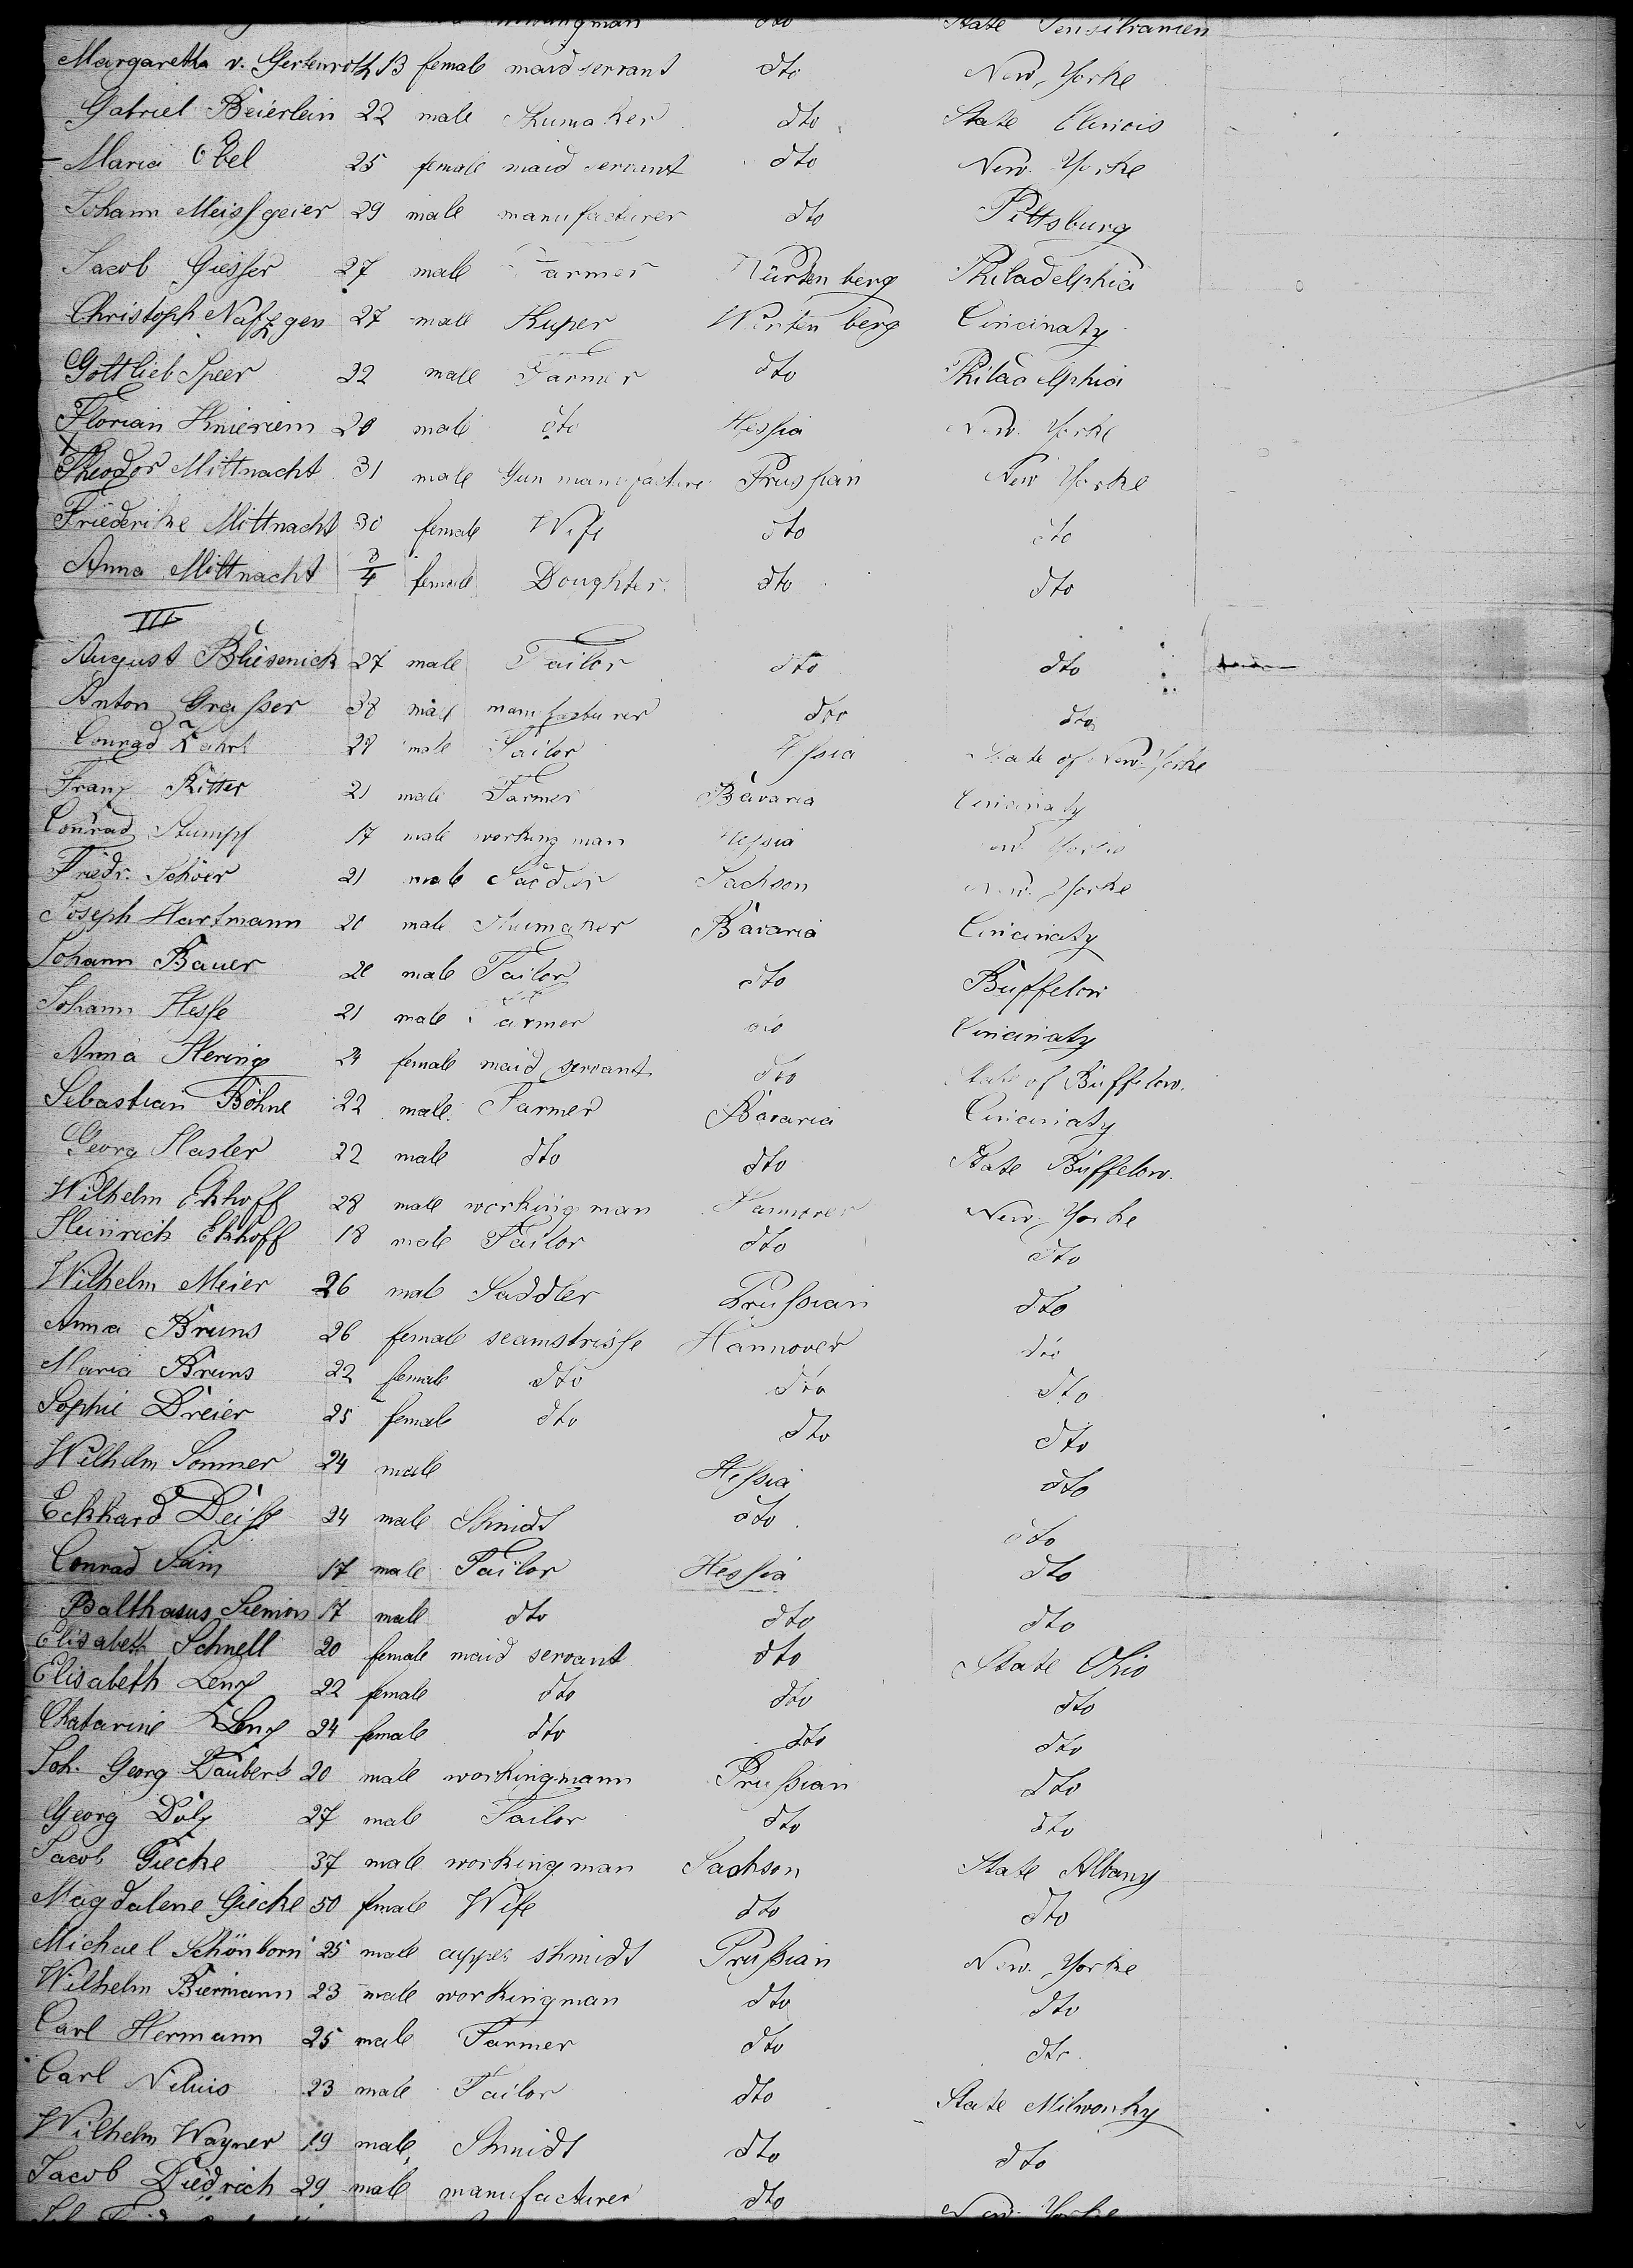 dto State Pensilvanien
Margaretha v. Gerlenroth 13 female maid servant dto New Yorke
Gabriel Beierlein 22 male Shumaker dto State Illinois
Maria Obel 25 female maid servant dto New Yorke
Johann Meissgeier 29 male manufacturer dto Pittsburg
Jacob Giesser 27 male Farmer Würtenberg Philadelphia
Christoph Nafzgen 27 male Kuper Würtenberg Cincinaty
Gottlieb Speer 22 male Farmer dto Philadelphia
Florian Knieriem 20 male dto Hessia New Yorke
Theodor Mittnacht 31 male Gun manufacture Prussian New Yorke
Friederike Mittnacht 30 female Wife dto dto
Anna Mittnacht 3/4 female Doughter dto dto
III
August Bliesenick 27 male Tailor dto dto
Anton Grasser 38 male manufacturer dto dto
Conrad 28 male Tailor Hessia State of New Yorke
Franz Ritter 21 male Farmer Bavaria Cincinaty
Conrad Stumpf 17 male working man Hessia New Yorke
Friedr. Schöer 21 male Sadler Sachson New Yorke
Joseph Hartmann 21 male Shumaker Bavaria Cincinaty
Johann Bauer 28 male Tailor dto Buffelow
Johann Hesse 21 male Farmer dto Cincinaty
Anna Hering 24 female maid servant dto State of Buffelow.
Sebastian Böhne 22 male Farmer Bavaria Cincinaty
Georg Hasler 22 male dto dto State Buffelow.
Wilhelm Ekhoff 28 male working man Hannover New Yorke
Heinrich Ekhoff 18 male Tailor dto dto
Wilhelm Meier 26 male Saddler Prussian dto
Anna Bruns 26 female seamstrisse Hannover dto
Maria Bruns 22 female dto dto dto
Sophie Dreier 25 female dto dto dto
Wilhelm Sommer 24 male Hessia dto
Eckhard Deiss 24 male Shmidt dto dto
Conrad Sain 17 male Tailor Hessia dto
Balthasus Siemon 17 male dto dto dto
Elisabeth Schnell 20 female maid servant dto State Ohio
Elisabeth Lenz 22 female dto dto dto
Chatarine Lenz 24 female dto dto dto
Joh. Georg Daubert 20 male workingmann Prussian dto
Georg Dölz 27 male Tailor dto dto
Jacob Giecke 37 male working man Sachson State Albany
Magdalene Giecke 50 female Wife dto dto
Michael Schönborn 25 male cupper shmidt Prussian New Yorke
Wilhelm Biermann 23 male workingman dto dto
Carl Hermann 25 male Farmer dto dto
Carl Nelius 23 male Tailor dto State Milwonky
Wilhelm Wagner 19 male Shmidt dto dto
Jacob Diedrich 29 male manufacturer dto New Yorke